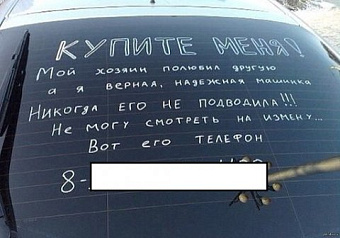 КУПИТЕ МЕНЯ!
Мой хозяин полюбил другую
а я верная, надежная машинка
Никогда ЕГО НЕ ПОДВОДИЛА!!!
Не могу смотреть на измену...
Вот его ТЕЛЕФОН
8-